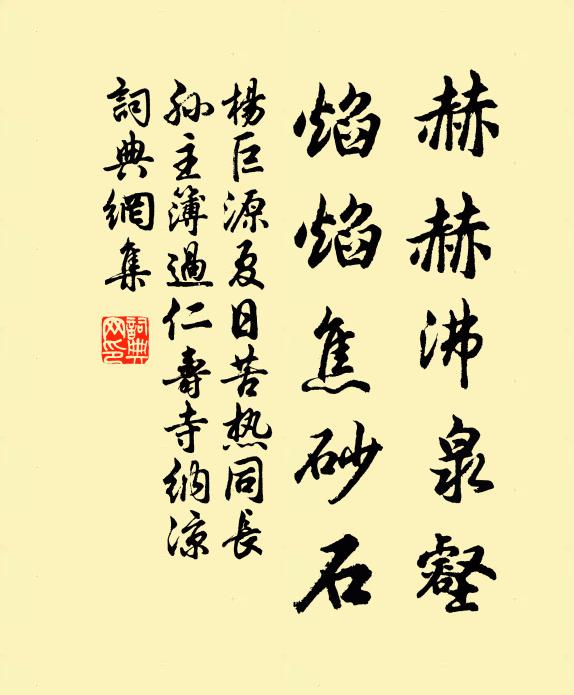 赫赫沸泉壑
焰焰焦砂石
楊巨源夏日苦热同長
孫主簿過仁壽寺納凉
詞典網集
詞典
网印